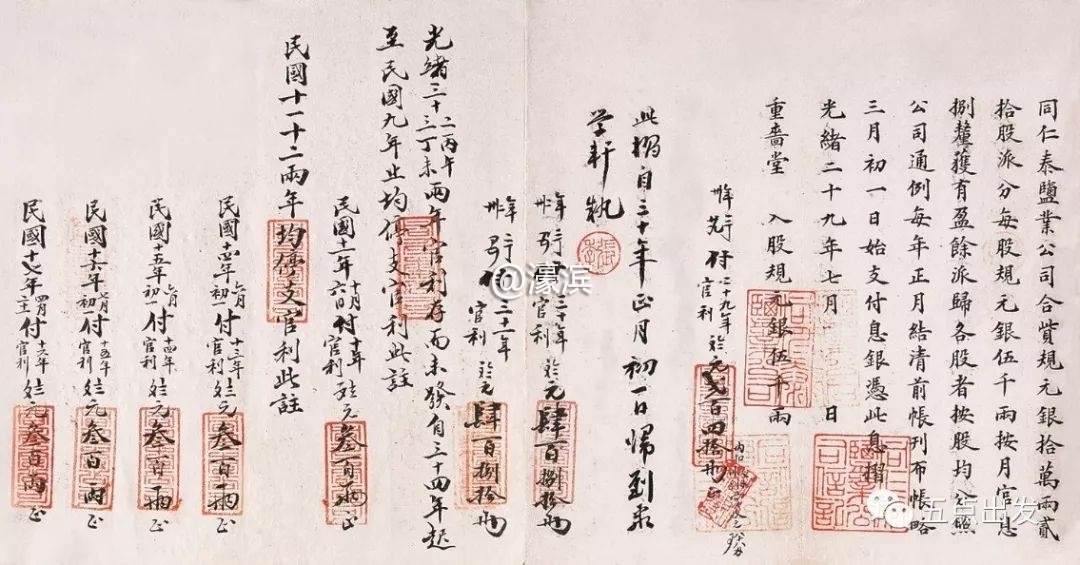 同仁泰鹽業公司合貲規元銀拾萬兩貳
拾股派分每股規元銀伍千兩按月官息
捌釐獲有盈餘派歸各股者按股均分照
公司通例每年正月結清前帳刊布帳略
三月初一日始支付息銀憑此息摺
光緒二十九年七月 日
重嗇堂 入股規元銀伍千兩
付二十九年官利
元貳百四拾兩
此摺自三十年正月初一日歸劉永
学軒執
付三十年官利
元肆百捌拾兩
付三十一年官利
元肆百捌拾兩
光緒三十二丙午三十三丁未兩年官利存而未發自三十四年起
至民國九年止均停支官利此註
民國十一年十月六日付十年官利
元叁百兩正
民國十一十二兩年均停支官利此註
民國十四年六月初一付十三年官利
元叁百兩正
民國十五年六月初一付十四年官利
元叁百兩正
民國十六年七月初一付十五年官利
元叁百兩正
民國十七年四月二十付十六年官利
元叁百兩正
@濠滨
五点出发